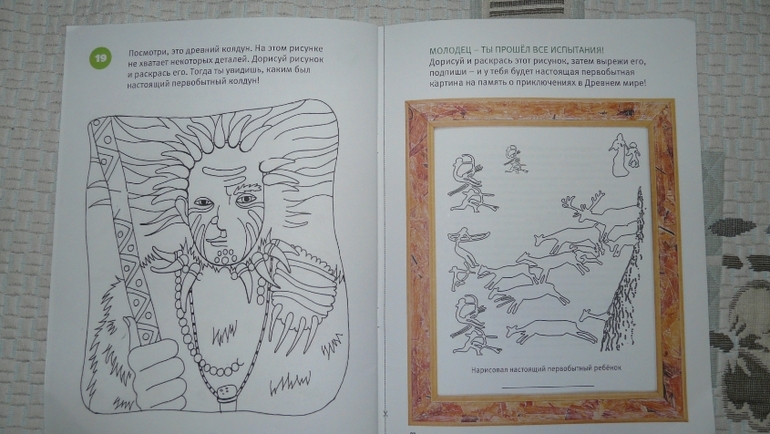 19
Посмотри, это древний колдун. На этом рисунке
не хватает некоторых деталей. Дорисуй рисунок
и раскрась его. Тогда ты увидишь, каким был
настоящий первобытный колдун!
МОЛОДЕЦ – ТЫ ПРОШЁЛ ВСЕ ИСПЫТАНИЯ!
Дорисуй и раскрась этот рисунок, затем вырежи его,
подпиши – и у тебя будет настоящая первобытная
картина на память о приключениях в Древнем мире!
Нарисовал настоящий первобытный ребёнок